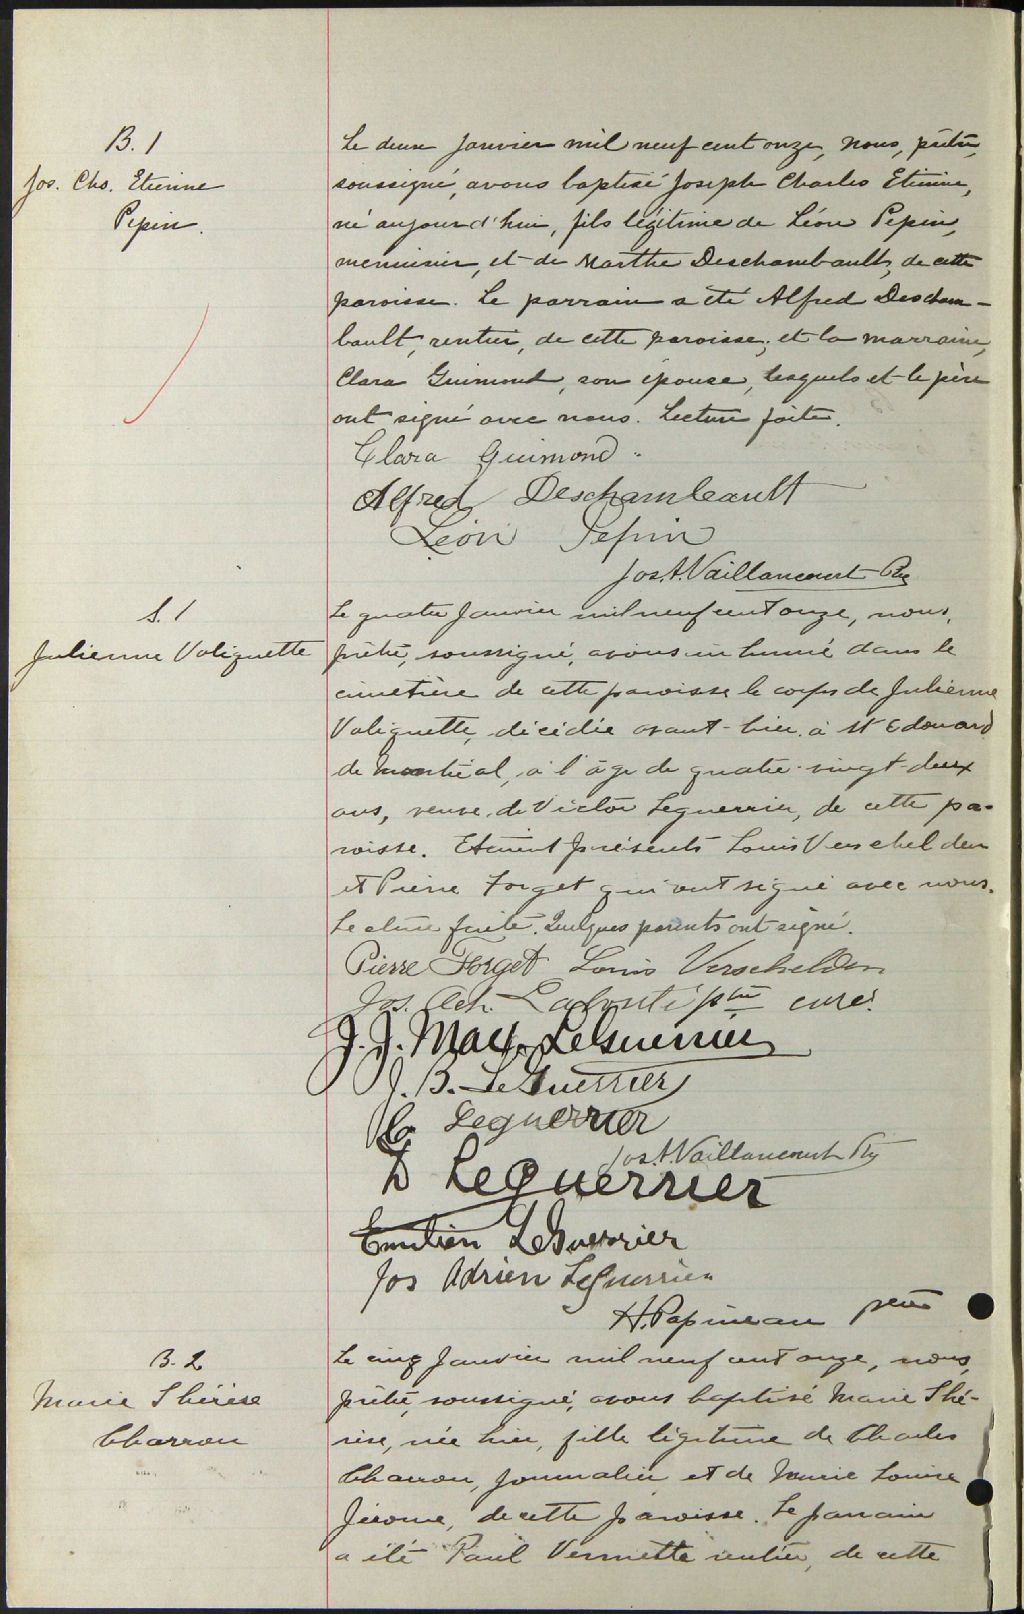 B. 1
Jos. Chs. Etienne
Pepin.
Le deux janvier mil neuf cent onze, nous, prêtre,
soussigné, avons baptisé Joseph Charles Etienne,
né aujourd'hui, fils légitime de Léon Pepin,
menuisier, et de Marthe Deschambault, de cette
paroisse. Le parrain a été Alfred Descham-
bault, rentier, de cette paroisse, et la marraine,
Clara Guimond, son épouse, lesquels et le père
ont signé avec nous. Lecture faite.
Clara Guimond
Alfred Deschambeault
Léon Pepin
Jos. A. Vaillancourt Ptre
S. 1
Julienne Valiquette
Le quatre Janvier mil neuf cent onze, nous,
prêtre, soussigné, avons inhumé dans le
cimetière de cette paroisse le corps de Julienne
Valiquette, décédée avant-hier à St Edouard
de Montréal, à l'âge de quatre-vingt-deux
ans, veuve de Victor Leguerrier, de cette pa-
roisse. Etaient présents Louis Verschelden
et Pierre Forget qui ont signé avec nous.
Lecture faite. Quelques parents ont signé.
Pierre Forget Louis Verschelden
Jos. Ach. ptre curé.
J. J. Max. LeGuerrier
J. B. LeGuerrier
Leguerrier
Jos. A. Vaillancourt Ptre
D LeGuerrier
Emilien LeGuerrier
Jos Adrien LeGuerrier
H. Papineau ptre
B. 2
Marie Thérèse
Charron
Le cinq Janvier mil neuf cent onze, nous,
prêtre, soussigné, avons baptisé Marie Thé-
rèse, née hier, fille légitime de Charles
Charron, journalier et de Marie Louise
Jérome, de cette paroisse. Le parrain
a été Paul Vermette rentier, de cette